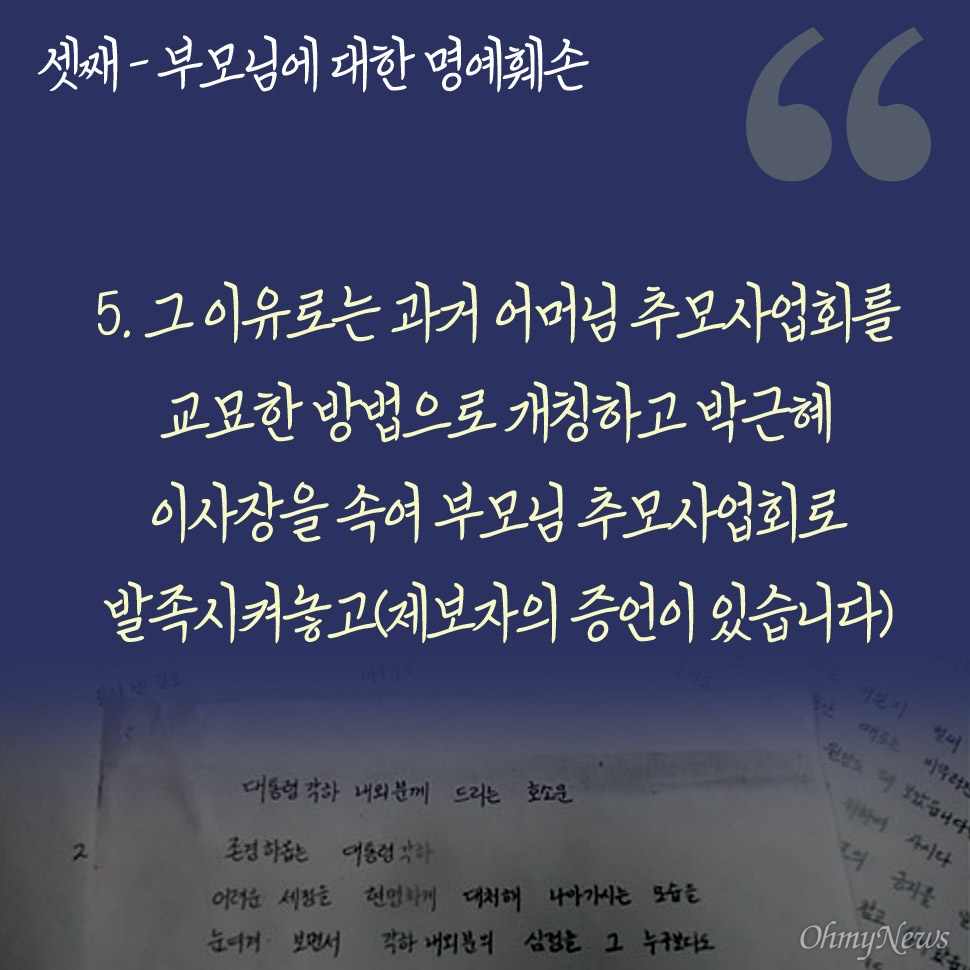 셋째 - 부모님에 대한 명예훼손
5. 그 이유로는 과거 어머님 추모사업회를
교묘한 방법으로 개칭하고 박근혜
이사장을 속여 부모님 추모사업회로
발족시켜놓고(제보자의 증언이 있습니다)
대통령 각하 내외분께 드리는 호소문
2 존경하옵는 대통령 각하
어려운 세정을 현명하게 대처해 나아가시는 모습을
눈여겨 보면서 각하 내외분의 심정을 그 누구보다도
OhmyNews